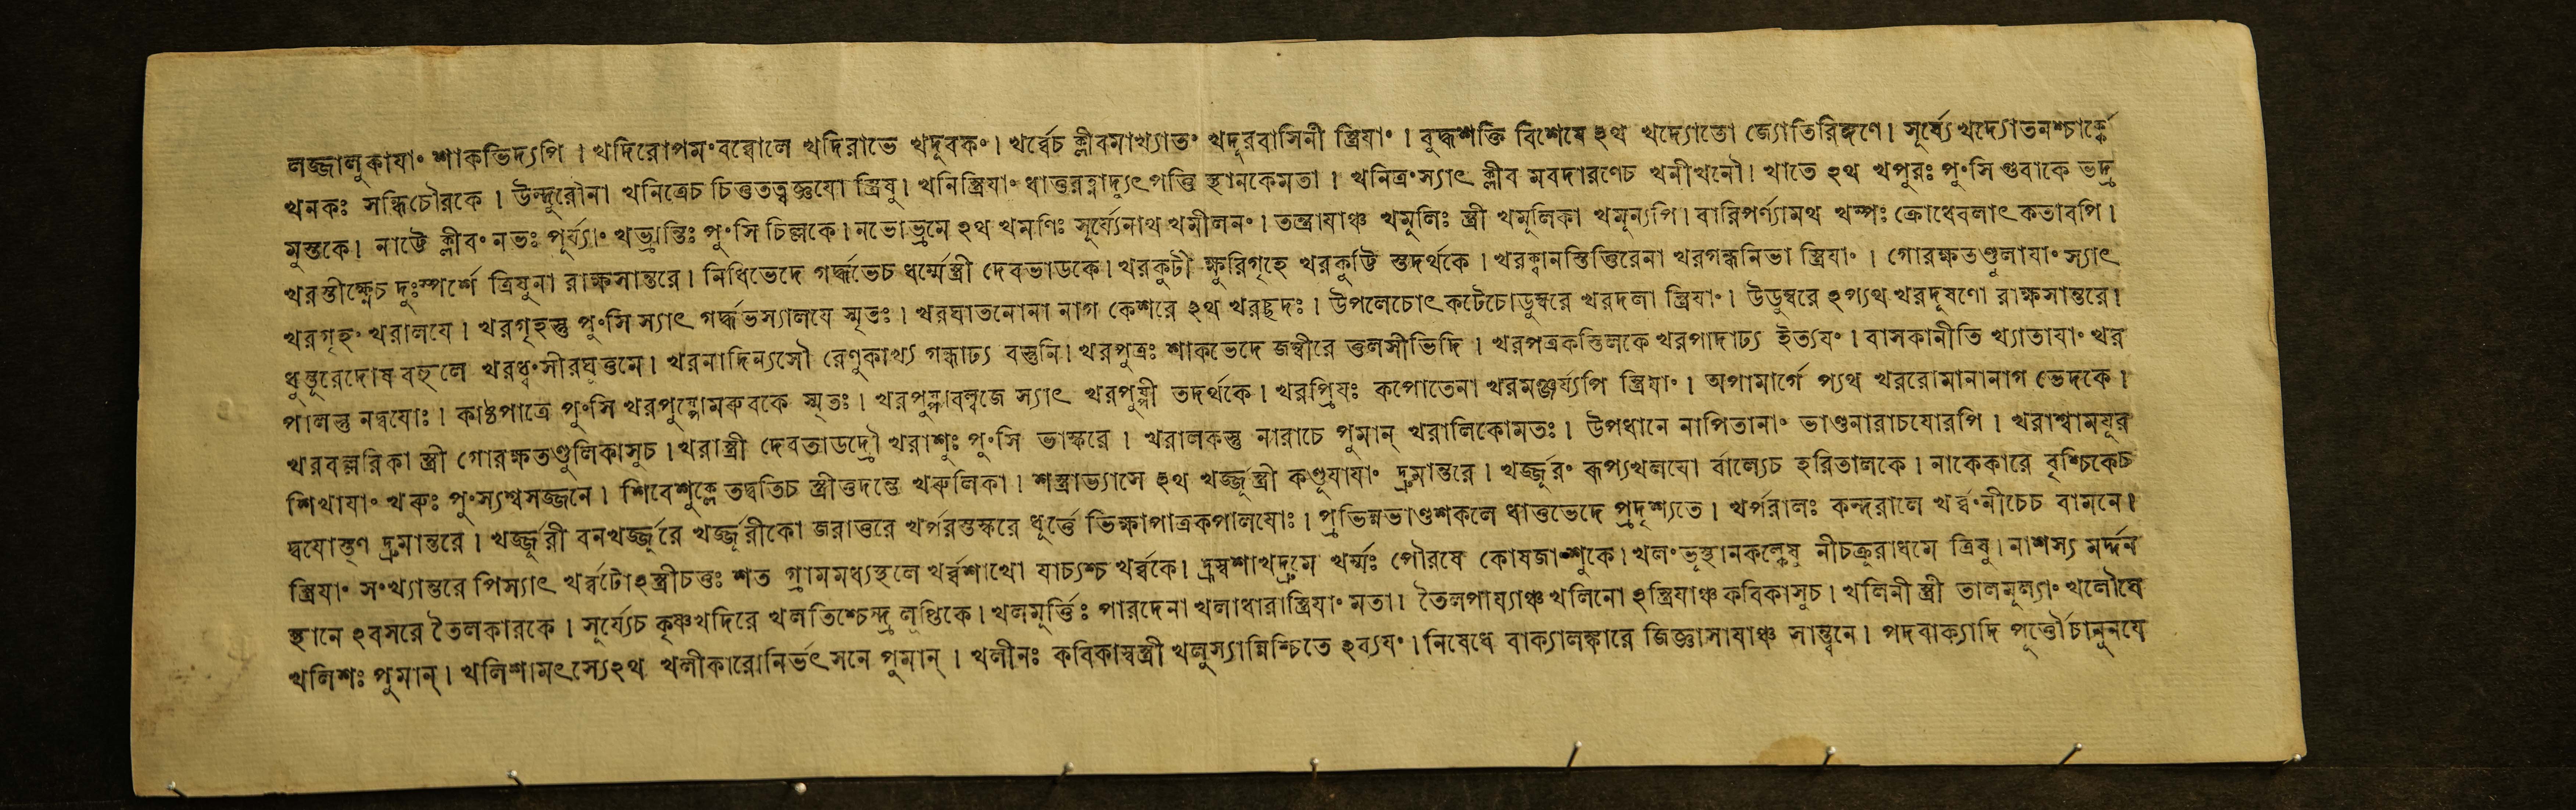 লজ্জালুকাযাং শাকভিদ্যপি । খদিরোপমংবব্বোলে খদিরাভে খদুবকং। খর্ব্বেচ ক্লীবমাখ্যাতং খদূরবাসিনী স্ত্রিযাং । বুদ্ধশক্তি বিশেষে ঽথ খদ্যোতো জ্যোতিরিঙ্গণে। সূর্য্যেখদ্যোতনশ্চার্ক্কে
খনকঃ সন্ধিচৌরকে । উন্দুরৌনা খনিত্রেচ চিত্ততত্বজ্ঞযো স্ত্রিষু। খনিস্ত্রিযাং ধাত্তুরত্নাদ্যুৎপত্তি স্থানকেমতা । খনিত্রংস্যাৎ ক্লীব মবদারণেচ খনীখনৌ। খাতে ঽথ খপুরঃ পুংসি গুবাকে ভদ্র
মুস্তকে। নাট্টে ক্লীবং নভঃ পূর্য্যাং খভ্রান্তিঃ পুংসি চিল্লকে। নভোভ্রমে ঽথ খমণিঃ সূর্য্যেনাথ খমীলনং। তন্ত্রাযাঞ্চ খমুলিঃ স্ত্রী খমূলিকা খমূন্যপি। বারিপর্ণ্যামথ খম্পঃ ক্রোধেবলাৎ কতাবপি।
খরস্তীক্ষ্ণেচ দুঃস্পর্শে ত্রিষুনা রাক্ষসান্তরে। নিধিভেদে গর্দ্ধভেচ ধর্ম্মেস্ত্রী দেবভাডকে। খরকুটী ক্ষুরিগৃহে খরকূট্টি স্তদর্থকে । খরক্বানস্তিত্তিরেনা খরগন্ধনিভা স্ত্রিযাং । গোরক্ষতণ্ডুলাযাং স্যাৎ
খরগৃহং খরালযে । খরগৃহস্তু পুংসি স্যাৎ গর্দ্ধভস্যালযে স্মৃতঃ । খরঘাতনোনা নাগ কেশরে ঽথ খরচ্ছদঃ । উপলেচোৎ কটেচোডুম্বরে খরদলা স্ত্রিযাং। উডুম্বরে ঽপ্যথ খরদূষণো রাক্ষসান্তরে।
ধুস্তূরেদোষ বহুলে খরধ্বংসীরঘূত্তমে। খরনাদিন্যসৌ রেণুকাখ্য গন্ধাঢ্য বস্তুনি। খরপুত্রঃ শাকভেদে জম্বীরে ত্তুলসীভিদি । খরপত্রকস্তিলকে খরপাদাঢ্য ইত্যযং । বাসকানীতি খ্যাতাযাং খর
পালস্তু নদ্বযোঃ। কাষ্ঠপাত্রে পুংসি খরপুষ্পোমরুবকে স্মৃতঃ । খরপুষ্পাবল্বজে স্যাৎ খরপুষ্পী তদর্থকে । খরপ্রিযঃ কপোতেনা খরমঞ্জর্য্যপি স্ত্রিযাং । অপামার্গে প্যথ খররোমানানাগ ভেদকে।
খরবল্লরিকা স্ত্রী গোরক্ষতণ্ডুলিকাসুচ । খরাস্ত্রী দেবতাডদ্রৌ খরাশুঃ পুংসি ভাস্করে । খরালকস্তু নারাচে পুমান্ খরালিকোমতঃ। উপধানে নাপিতানাং ভাণ্ডনারাচযোরপি । খরাশ্বামযূর
শিখাযাং খরুঃ পুংস্যশ্বসজ্জনে । শিবেশুক্লে তদ্বতিচ স্ত্রীত্তদন্তে খরুলিকা । শস্ত্রাভ্যাসে ঽথ খর্জ্জূস্ত্রী কণ্ডূযাযাং দ্রুমান্তরে । খর্জ্জূরং রূপ্যখলযো র্বাল্যেচ হরিতালকে । নাকেকারে বৃশ্চিকেচ
দ্বযোস্তৃণ দ্রুমান্তরে । খর্জ্জূরী বনখর্জ্জূরে খর্জ্জূরীকো জরাত্তরে খর্পরস্তস্করে ধূর্ত্তে ভিক্ষাপাত্রকপালযোঃ । প্রভিন্নভাণ্ডশকলে ধাত্তভেদে প্রদৃশ্যতে । খর্পরালঃ কন্দরালে খর্ব্বংনীচেচ বামনে।
স্ত্রিযাং সংখ্যান্তরে পিস্যাৎ খর্ব্বটোঽস্ত্রীচত্তঃ শত গ্রামমধ্যস্থলে খর্ব্বশাখো যাচ্যশ্চ খর্ব্বকে। হ্রস্বশাখদ্রুমে খর্ম্মঃ পৌরষে কোষজাংশুকে। খলংভূস্থানকল্কেষু নীচক্রূরাধমে ত্রিষু। নাশস্য মর্দ্দন
স্থানে ঽবসরে তৈলকারকে । সূর্য্যেচ কৃষ্ণখদিরে খলতিশ্চেন্দ্র লুপ্তিকে। খলমূর্ত্তিঃ পারদেনা খলাধারাস্ত্রিযাং মতা। তৈলপায্যাঞ্চ খলিনো ঽস্ত্রিযাঞ্চ কবিকাসুচ । খলিনী স্ত্রী তালমূল্যাং খলৌঘে
খলিশঃ পুমান্। খলিশামৎস্যেঽথ খলীকারোনির্ভৎসনে পুমান্ । খলীনঃ কবিকাস্বস্ত্রী খলুস্যান্নিশ্চিতে ঽব্যযং । নিষেধে বাক্যালঙ্কারে জিজ্ঞাসাযাঞ্চ সান্ত্বনে। পদবাক্যাদি পূর্ত্তৌচানুনযে